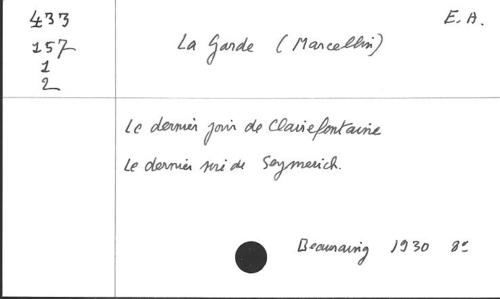 433
157
1
2
E. A.
La Garde (Marcellin)
Le dernier jour de Clairefontaine
Le dernier sire de Seymerich.
Beauraing 1930 8°